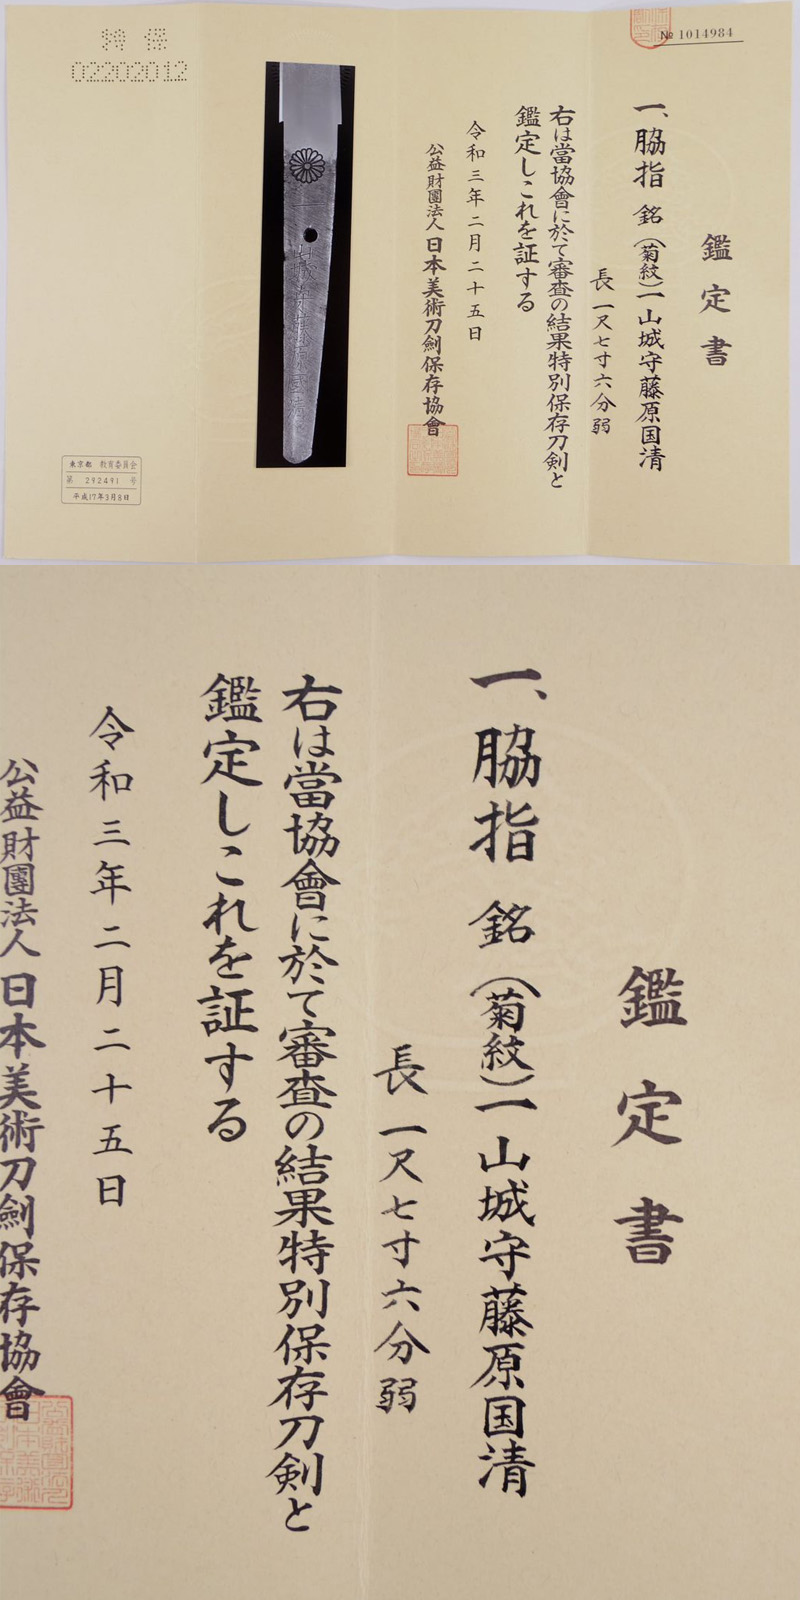 № 1014984
鑑定書
一、脇指 銘（菊紋）一山城守藤原国清
長一尺七寸六分弱
右は當協會に於て審査の結果特別保存刀剣と
鑑定しこれを証する
令和三年二月二十五日
公益財團法人日本美術刀劍保存協會
特保
02202012
東京都 教育委員会
第 292491 号
平成17年3月8日
鑑定書
一、脇指 銘（菊紋）一山城守藤原国清
長一尺七寸六分弱
右は當協會に於て審査の結果特別保存刀剣と
鑑定しこれを証する
令和三年二月二十五日
公益財團法人日本美術刀劍保存協會